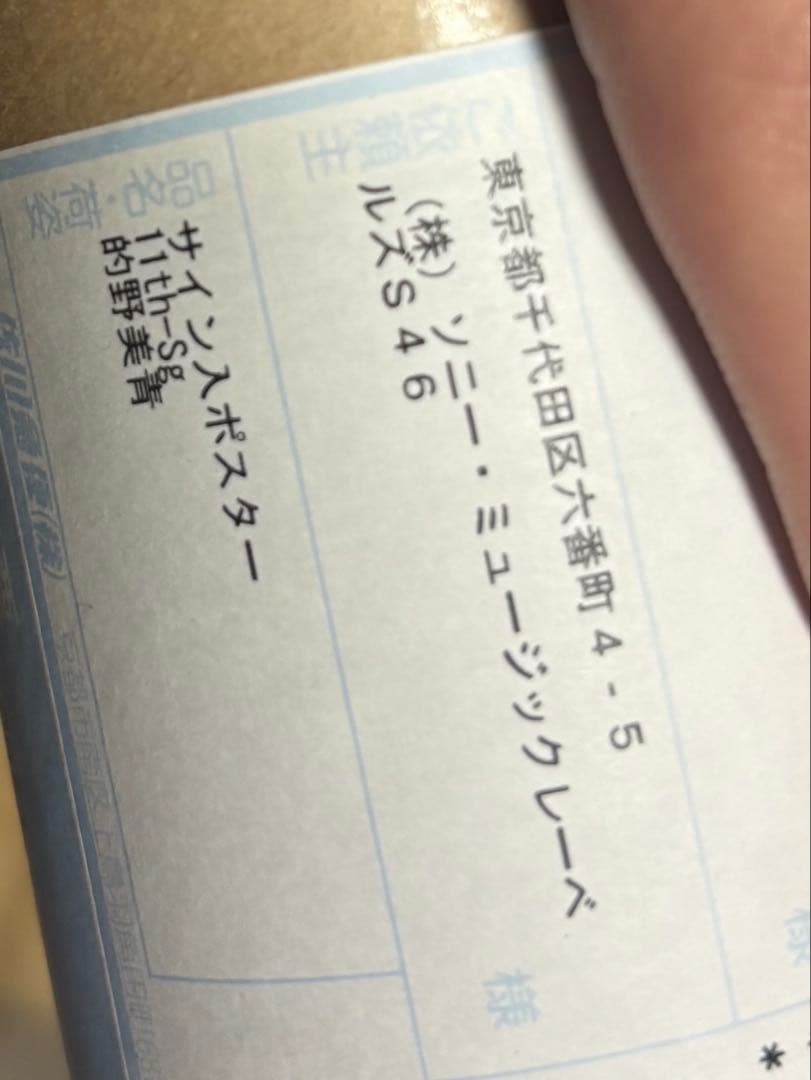 ご依頼主
東京都千代田区六番町4-5
(株)ソニー・ミュージックレーベ
ルズS46
様
品名・荷姿
サイン入ポスター
11th-Sg
的野美青
佐川急便(株)
様
*